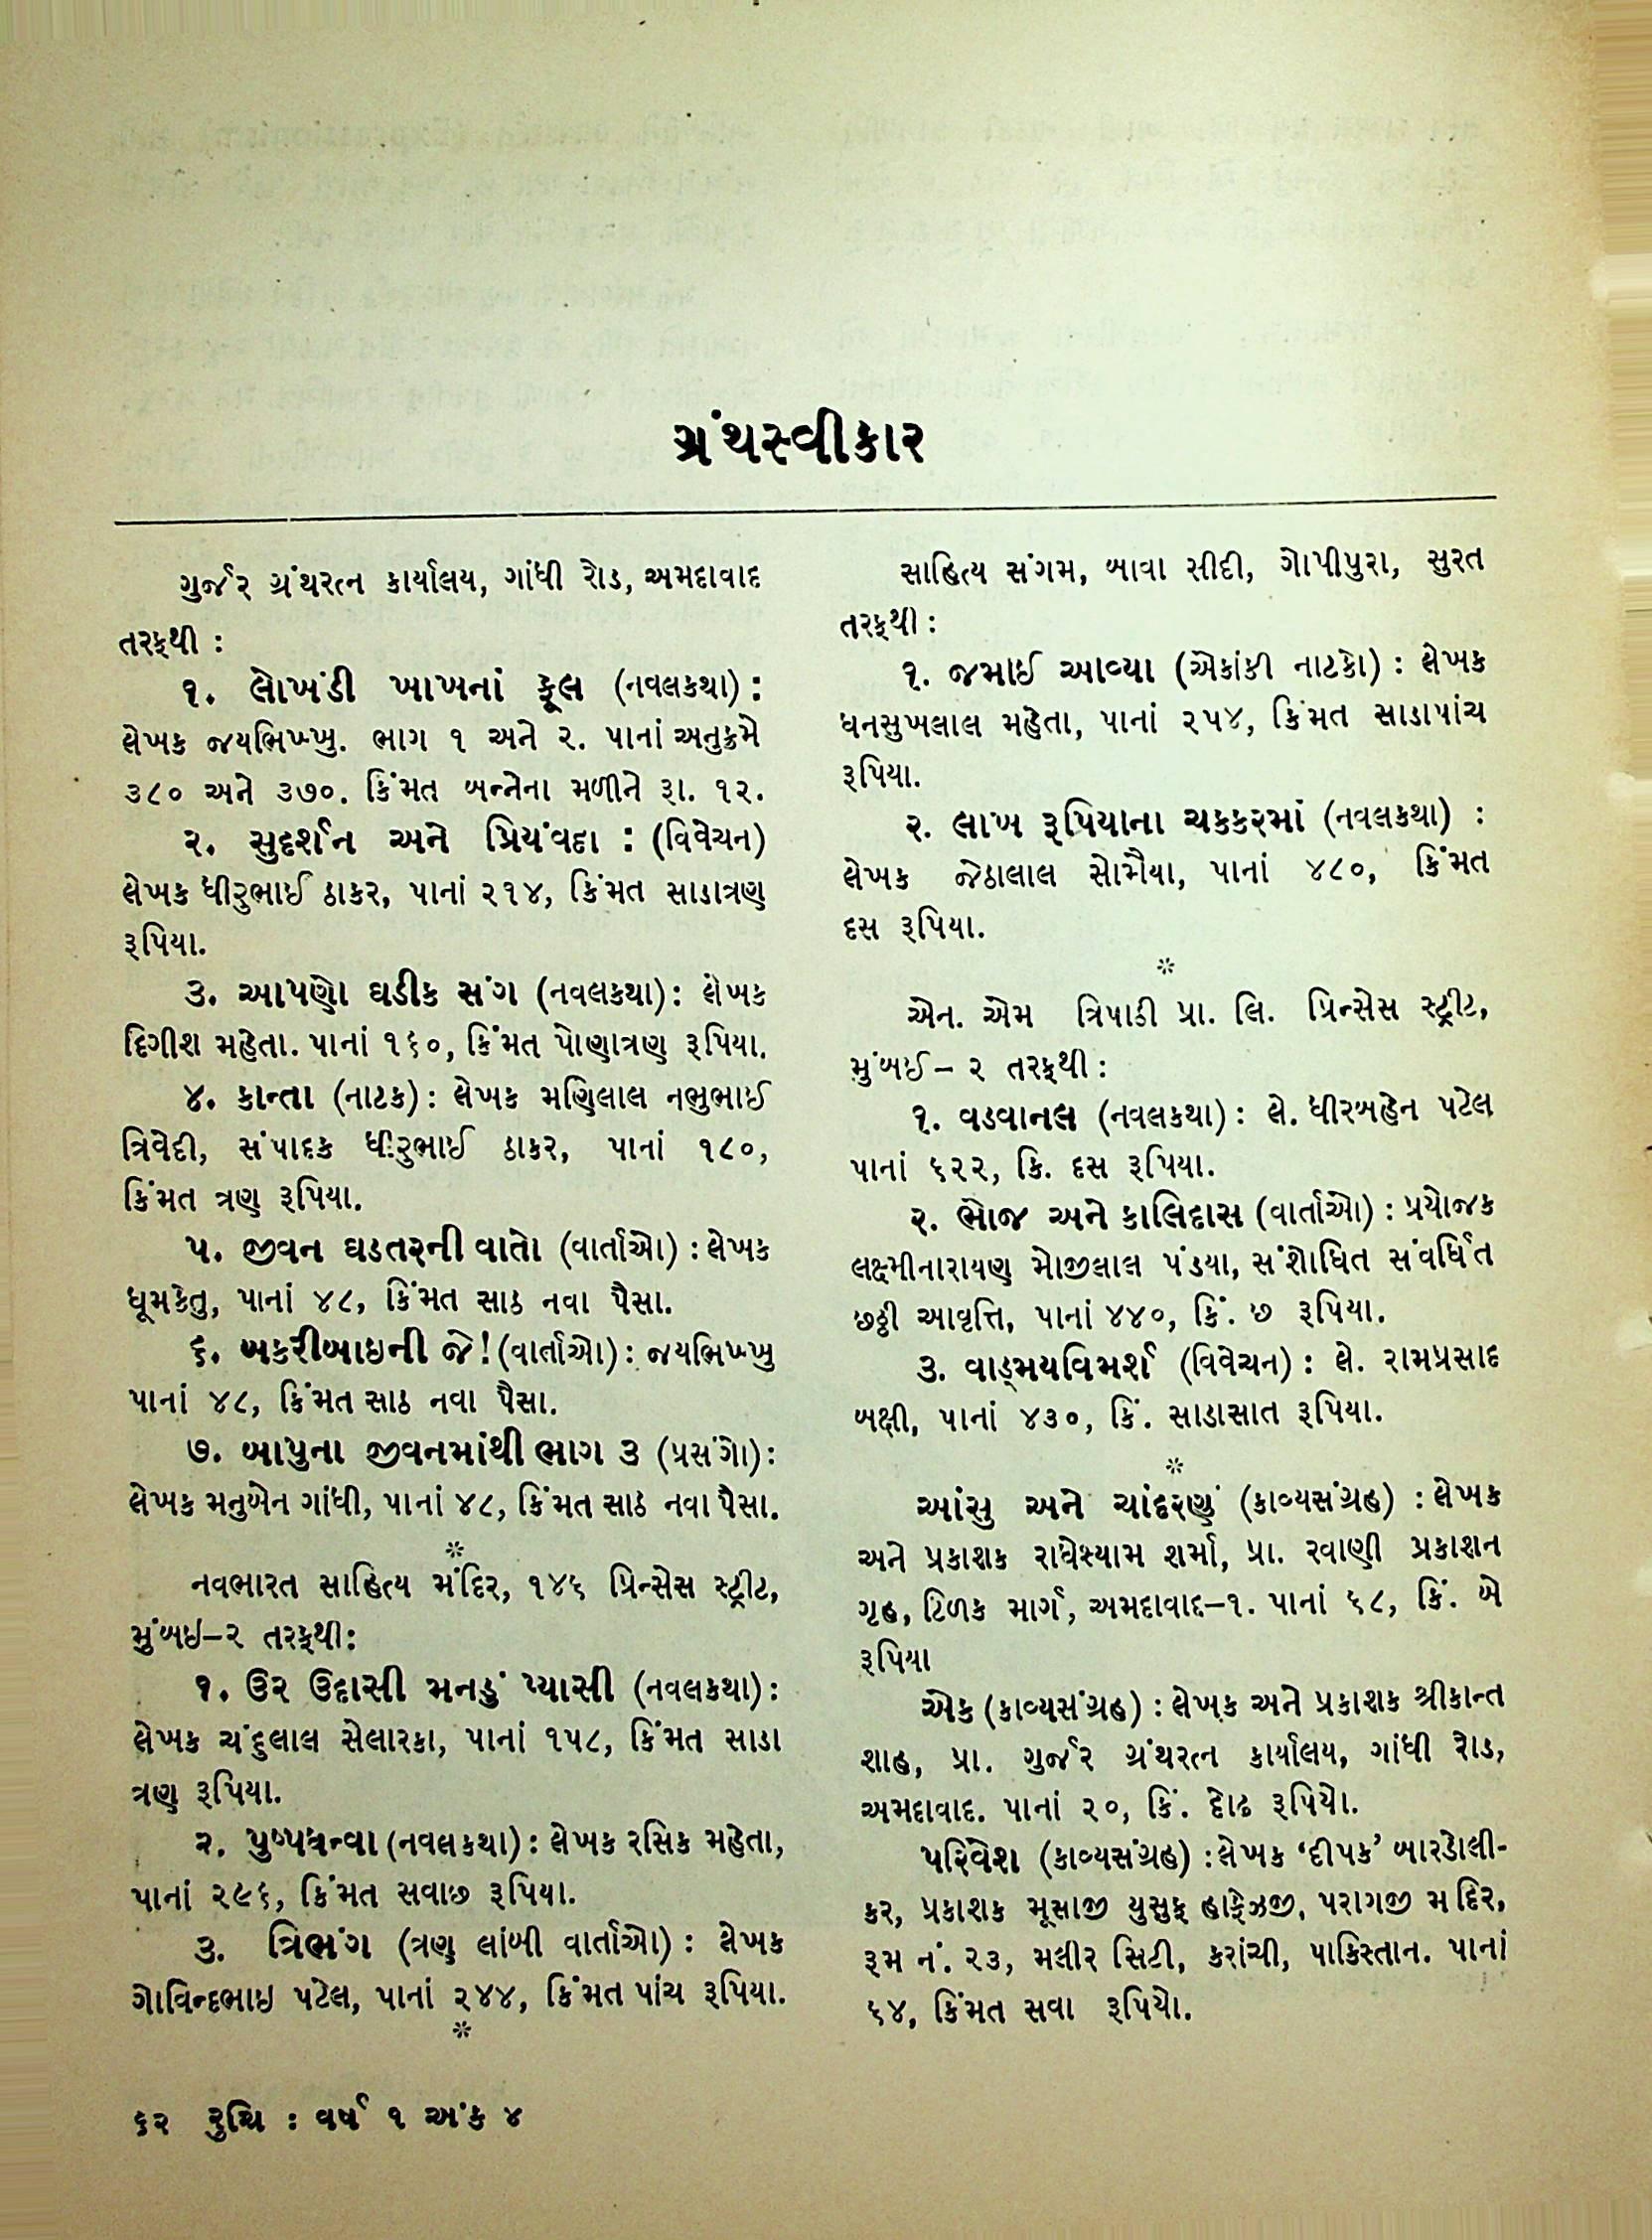 ગ્રંથસ્વીકાર
ગુર્જર ગ્રંથરત્ન કાર્યાલય, ગાંધી રોડ, અમદાવાદ
તરફથી :
૧. લોખંડી ખાખનાં ફૂલ (નવલકથા) :
લેખક જયભિખ્ખુ. ભાગ ૧ અને ૨. પાનાં અનુક્રમે
૩૮૦ અને ૩૭૦. કિંમત બન્નેના મળીને રૂા. ૧૨.
૨. સુદર્શન અને પ્રિયંવદા : (વિવેચન)
લેખક ધીરુભાઈ ઠાકર, પાનાં ૨૧૪, કિંમત સાડાત્રણ
રૂપિયા.
૩. આપણો ઘડીક સંગ (નવલકથા) : લેખક
દિગીશ મહેતા. પાનાં ૧૬૦, કિંમત પોણાત્રણ રૂપિયા.
૪. કાન્તા (નાટક) : લેખક મણિલાલ નભુભાઈ
ત્રિવેદી, સંપાદક ધીરુભાઈ ઠાકર, પાનાં ૧૮૦,
કિંમત ત્રણ રૂપિયા.
૫. જીવન ઘડતરની વાતો (વાર્તાઓ) : લેખક
ધૂમકેતુ, પાનાં ૪૮, કિંમત સાઠ નવા પૈસા.
૬. બકરીબાઇની જે! (વાર્તાઓ) : જયભિખ્ખુ
પાનાં ૪૮, કિંમત સાઠ નવા પૈસા.
૭. બાપુના જીવનમાંથી ભાગ ૩ (પ્રસંગો) :
લેખક મનુબેન ગાંધી, પાનાં ૪૮, કિંમત સાઠ નવા પૈસા.
*
નવભારત સાહિત્ય મંદિર, ૧૪૬ પ્રિન્સેસ સ્ટ્રીટ,
મુંબઇ–૨ તરફથી:
૧. ઉર ઉદાસી મનડું પ્યાસી (નવલકથા) :
લેખક ચંદુલાલ સેલારકા, પાનાં ૧૫૮, કિંમત સાડા
ત્રણ રૂપિયા.
૨. પુષ્પધન્વા (નવલકથા) : લેખક રસિક મહેતા,
પાનાં ૨૯૬, કિંમત સવાછ રૂપિયા.
૩. ત્રિભંગ (ત્રણ લાંબી વાર્તાઓ) : લેખક
ગોવિન્દભાઇ પટેલ, પાનાં ૨૪૪, કિંમત પાંચ રૂપિયા.
*
સાહિત્ય સંગમ, બાવા સીદી, ગોપીપુરા, સુરત
તરફથી :
૧. જમાઈ આવ્યા (એકાંકી નાટકો) : લેખક
ધનસુખલાલ મહેતા, પાનાં ૨૫૪, કિંમત સાડાપાંચ
રૂપિયા.
૨. લાખ રૂપિયાના ચકકરમાં (નવલકથા) :
લેખક જેઠાલાલ સોમૈયા, પાનાં ૪૮૦, કિંમત
દસ રૂપિયા.
*
એન. એમ ત્રિપાઠી પ્રા. લિ. પ્રિન્સેસ સ્ટ્રીટ,
મુંબઈ – ૨ તરફથી :
૧. વડવાનલ (નવલકથા) : લે. ધીરબહેન પટેલ
પાનાં ૬૨૨, કિ. દસ રૂપિયા.
૨. ભોજ અને કાલિદાસ (વાર્તાઓ) : પ્રયોજક
લક્ષ્મીનારાયણ મોજીલાલ પંડયા, સંશોધિત સંવર્ધિત
છઠ્ઠી આવૃત્તિ, પાનાં ૪૪૦, કિં. છ રૂપિયા.
૩. વાઙ્મયવિમર્શ (વિવેચન) : લે. રામપ્રસાદ
બક્ષી, પાનાં ૪૩૦, કિં. સાડાસાત રૂપિયા.
*
આંસુ અને ચાંદરણું (કાવ્યસંગ્રહ) : લેખક
અને પ્રકાશક રાધેશ્યામ શર્મા, પ્રા. રવાણી પ્રકાશન
ગૃહ, ટિળક માર્ગ, અમદાવાદ–૧. પાનાં ૬૮, કિં. બે
રૂપિયા
એક (કાવ્યસંગ્રહ) : લેખક અને પ્રકાશક શ્રીકાન્ત
શાહ, પ્રા. ગુર્જર ગ્રંથરત્ન કાર્યાલય, ગાંધી રોડ,
અમદાવાદ. પાનાં ૨૦, કિં. દોઢ રૂપિયો.
પરિવેશ (કાવ્યસંગ્રહ) : લેખક ‘દીપક’ બારડોલી-
કર, પ્રકાશક મૂસાજી યુસુફ હાફેઝજી, પરાગજી મંદિર,
રૂમ નં. ૨૩, મલીર સિટી, કરાંચી, પાકિસ્તાન. પાનાં
૬૪, કિંમત સવા રૂપિયો.
૬૨ રુચિ : વર્ષ ૧ અંક ૪